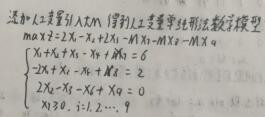 添加人工变量引入大M 得到人工变量单纯形法数学模型
max z=2x₁-x₂+2x₃-Mx₇-Mx₈-Mx₉
x₁+x₂+x₃-x₄+x₇=6
-2x₁+x₃-x₅+x₈=2
2x₂-x₃-x₆+x₉=0
xi≥0, i=1,2…,9